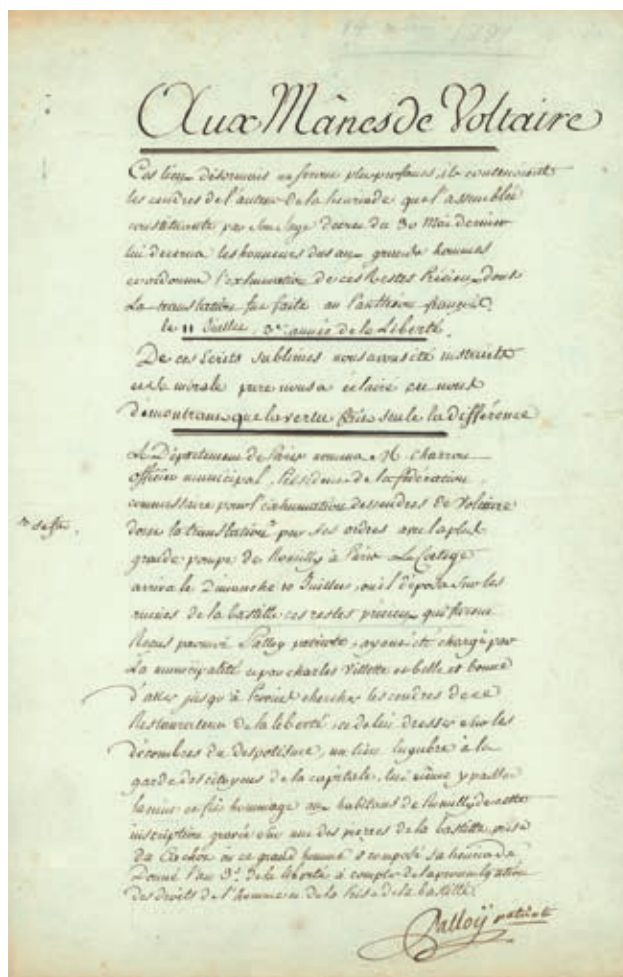 Aux Mânes de Voltaire
Ces lieux désormais ne seront plus profanes, ils contenoient
les cendres de l'auteur de la henriade que l'assemblée
constituante par son sage decret du 30 Mai dernier
lui decerna les honneurs dus aux grands hommes
et ordonna l'exhumation de ces Restes Précieux dont
La translation fut faite au Panthéon français
le 11 Juillet, 3e année de la Liberté.
De ces Ecrits sublimes nous avons été instruits
et sa morale pure nous a éclairé en nous
démontrant que la vertu fait seule la différence
Le Département de Paris nomma M. charron
officier municipal, Président de la fédération,
commissaire pour l'exhumation des cendres de Voltaire
dont la translation par ses ordres avec la plus
grande pompe de Romilly à Paris Le Cortege
arriva le Dimanche 10 Juillet, où il déposa sur les
ruines de la bastille ces restes précieux qui furent
Reçus par Palloy patriote, ayant été chargé par
La municipalité et par charles Villette et belle et bonne
d'aller jusqu'à chercher les cendres de ce
Restaurateur de la liberté, et de lui dresser sur les
décombres du despotisme, un lieu lugubre à la
garde des citoyens de la capitale, lui même y passa
la nuit et fit hommage aux habitans de Romilly de cette
inscription gravée sur une des pierres de la bastille
Du Cachot où ce grand homme a composé sa henriade
Donné l'an 3e de la liberté à compter de la promulgation
des droits de l'homme et de la Prise de la bastille
Palloÿ patriote